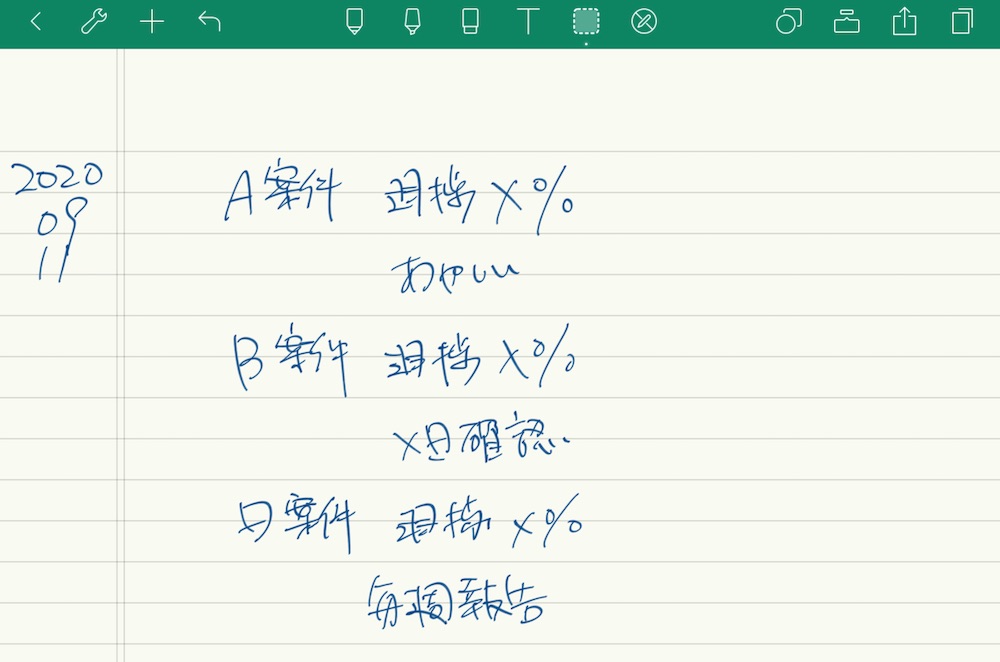 2020
09
11
A案件 進捗 X%
あやしい
B案件 進捗 X%
X日確認
D案件 進捗 X%
毎週報告